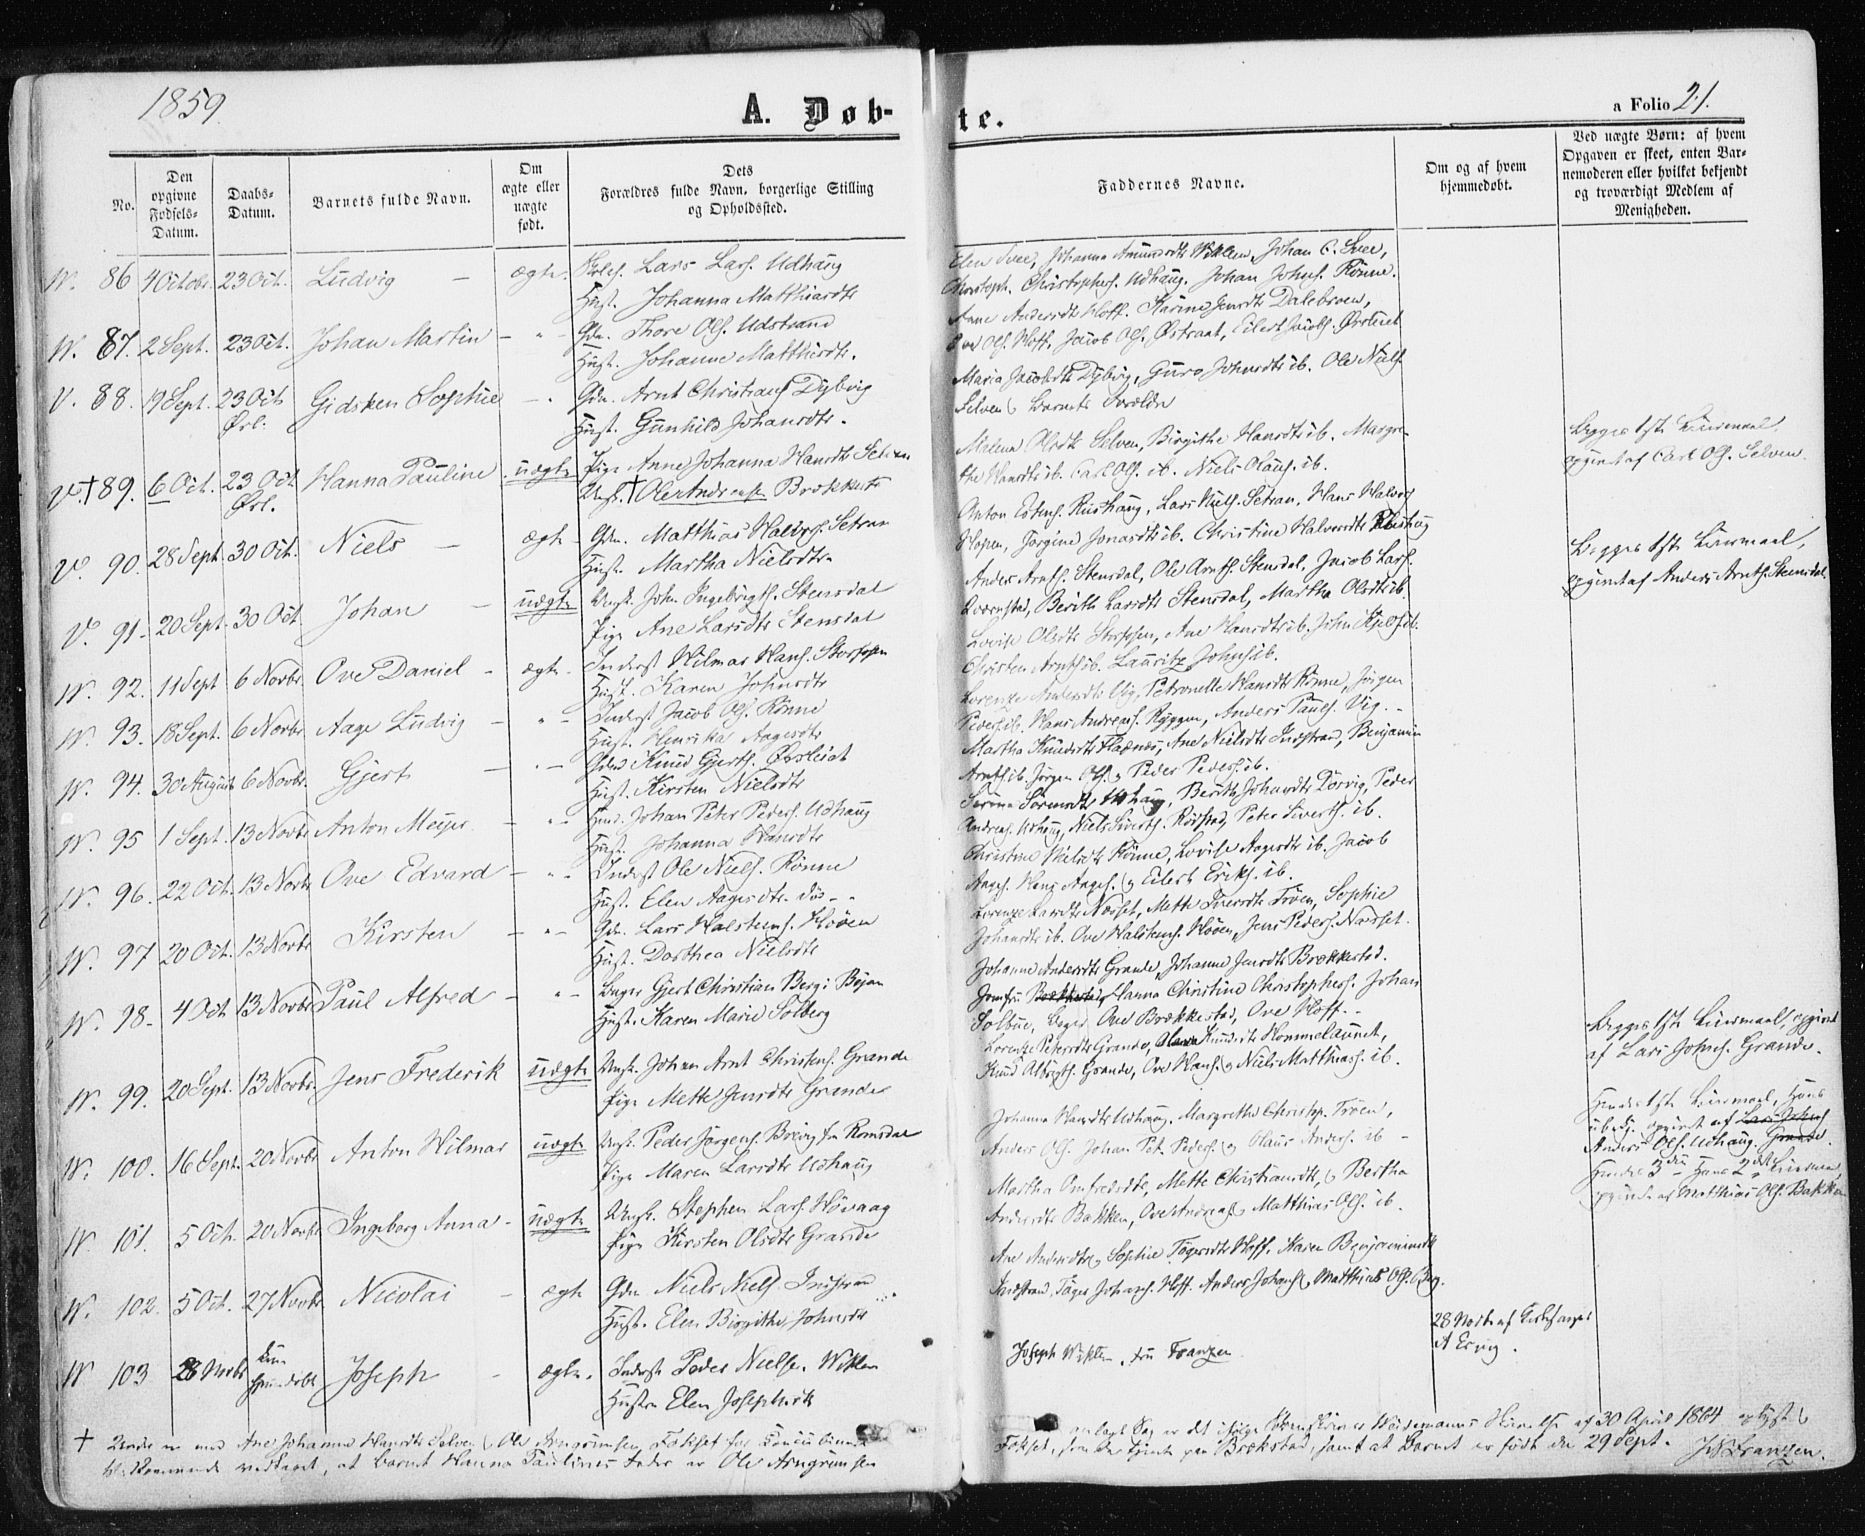 1859
A. Døb-
te.
a Folio 21.
No.
Den opgivne Fødsels-Datum.
Daabs-Datum.
Barnets fulde Navn.
Om ægte eller uægte født.
Dets Forældres fulde Navn, borgerlige Stilling og Opholdssted.
Faddernes Navne.
Om og af hvem hjemmedøbt.
Ved uægte Børn: af hvem Opgaven er skeet, enten Barnemoderen eller hvilket bekjendt og troværdigt Medlem af Menigheden.
86 4 Octobr. 23 Oct. Ludvig – ægte. Lars Lars. Udhaug
Hust. Johanna Matthiasdtr
Elen Svee, Johanna Amundsdtr Viklem, Johan C. Svee,
Christoph. Christophers. Udhaug. Johan Johns. Rønne.
87. 2 Sept. 23 Oct. Johan Martin – " – Gdm. Thore Ols. Udstrand
Hust. Johanne Matthisdtr.
Ane Andersdtr Hoff. Karine Jensdtr Dalebroen,
Ols. Hoff, Jacob Ols. Østraat, Eilert Jacobs. Ørsleiet
V. 88. 19 Sept. 23 Oct. Ørl. Gidsken Sophie – " Gdm. Arnt Christians. Dybvig
Hust. Gunhild Johansdtr.
Maria Jacobsdtr Dybvig, Guro Johnsdtr ib. Ole Niels.
Selven & Barnets Forældre
V. † 89. 6 Oct. 23 Oct. Ørl. Hanna Pauline uægte Pige Anne Johanna Hansdtr Selven
Ungk. † Ole Andreasen Brækkstr
Malena Olsdtr Selven, Birgithe Hansdtr ib. Margre-
the Hansdtr ib. Carl Ols. ib. Niels Olaus. ib.
Begges 1ste Leiermaal,
opgivet af Carl Ols. Selven.
V. 90. 28 Sept. 30 Oct. Niels – ægte – Gdm. Matthias Halvors. Setran
Hust. Martha Nielsdtr
Anton Estens. Rishaug, Lars Niels. Setran, Hans Halvors.
Hopen, Jørgine Jonasdtr ib. Christine Halvorsdtr Rishaug
V. 91. 20 Sept. 30 Oct. Johan – uægte Ungk. John Ingebrigts. Stensdal
Pige Ane Larsdtr Stensdal
Anders Arnts. Stensdal, Ole Arnts. Stensdal, Jacob Lars.
Kværnstad, Berith Larsdtr Stensdal, Martha Olsdtr ib.
Begges 1ste Leiermaal,
opgivet af Anders Arnts. Stensdal.
92. 11 Sept 6 Novbr Ove Daniel – ægte. Inderst Hilmar Hans. Storfosen
Hust. Karen Johnsdtr
Lovise Olsdtr Storfosen, Ane Hansdtr ib. John Kjels. ib.
Christen Arnts. ib. Lauritz Johns. ib.
93. 18 Sept. 6 Novbr Aage Ludvig – " – Inderst Jacob Ols. Rønne
Hust. Henrika Aagesdtr
Lorentze Andersdtr Vig, Petronelle Hansdtr Rønne, Jørgen
Peders. ib. Hans Andreas. Ryggen, Anders Pauls. Vig. –
94. 30 August 6 Novbr Gjert – " – Gdm Knud Gjerts. Ørsleiet
Hust. Kirsten Nielsdtr
Martha Knudsdtr Flatnes, Ane Nielsdtr Indstrand, Benjamin
Arnts. ib. Jørgen Ols. & Peder Peders. ib.
95 1 Sept. 13 Novbr Anton Meyer – " – Johan Peter Peders. Udhaug
Hust. Johanna Hansdtr
Serina Sørensdtr Udhaug, Berith Johansdtr Dorvig, Peder
Andreas. Udhaug, Niels Siverts. Rødstad, Peter Siverts. ib.
96. 22 Oct. 13 Novbr Ove Edvard – " – Inderst Ole Niels. Rønne
Hust. Elen Aagesdtr do – "
Christine Nielsdtr Rønne, Lovise Aagesdtr ib. Jacob
Aages. Hans Aages. & Eilert Eriks. ib.
97 20 Oct. 13 Novbr Kirsten – " – Gdm. Lars Halstens. Høøen
Hust. Dorthea Nielsdtr
Lorentze Larsdtr Næsset, Mette Iversdtr Trøen, Sophie
Johansdtr ib. Ove Halstens. Høøen, Jens Peders. Næsset.
98 – 4 Oct 13 Novbr Paul Alfred – " – Gjert Christian Berg i Bøjan
Hust. Karen Marie Solberg
Johanne Andersdtr Grande, Johanne Jensdtr Brækkestad.
Jomfru Hanna Christine Christophers. Johan
Solbue, Ove Brækkestad, Ove Hoff. –
99. 20 Sept. 13 Novbr. Jens Frederik uægte Ungk. Johan Arnt Christens. Grande
Pige Mette Jensdtr Grande
Lorentze Petersdtr Grande, Knudsdtr Hommelaunet,
Knud Albrigts. Grande, Ove Hans. & Niels Matthias. ib.
Begges 1ste Leiermaal, opgivet
af Lars Johns. Grande.
100. 16 Sept. 20 Novbr Anton Hilmar uægte Ungk. Peder Jørgens. Breivig fra Romsdal
Pige Maren Larsdtr Udhaug
Johanna Hansdtr Udhaug, Margrethe Christoph. Trøen,
Anders Ols. Johan Pet. Peders. & Olaus Anders. ib –
Hendes 1ste Leiermaal, Hans
opgivet af Lars Johns
Anders Ols. Udhaug. Grande.
101. 5 Oct. 20 Novbr Ingeborg Anna – uægte Ungk. Stephen Lars. Høvaag
Pige Kirsten Olsdtr Grande
Martha Omfredsdtr, Mette Christiansdtr, & Bertha
Andersdtr Bakken, Ove Andreas. & Matthias Ols. ib.
Hendes 3die – Hans 2det Leiermaal
opgivet af Matthias Ols. Bakken
102. 5 Oct. 27 Novbr Nicolai – ægte Gdm Niels Niels. Indstrand
Hust. Elen Birgithe Johnsdtr
Ane Andersdtr, Sophie Tøgersdtr Hoff. Karen Benjaminsdtr
Indstrand, Tøger Johans. Hoff. Anders Johans. & Matthias Ols. Berg.
103 28 Novbr kun hjemmedøbt Joseph – ægte. Inderst Peder Nielsen Viklem
Hustru Elen Josephsdtr
Joseph Viklem. fru Franzen.
28 Novbr af Kirkesanger
A Ervig.
† Under med Ane Johanna Hansdtr Selven & Ole Arngrimsen Fokset for Concubinat
Vedkommende vedtaget, at Barnet Hanna Paulines Fader er Ole Arngrimsen
anlagt Sag er det ifølge Værnskriver Weidemanns Skrivelse af 30 April 1864 oplyst &
Fokset, som da tjente paa Brækstad, samt at Barnet er født den 29 Sept. – JW Franzen.